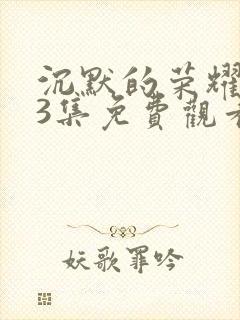 沉默的荣耀
3集免費觀看
妖歌罪吟